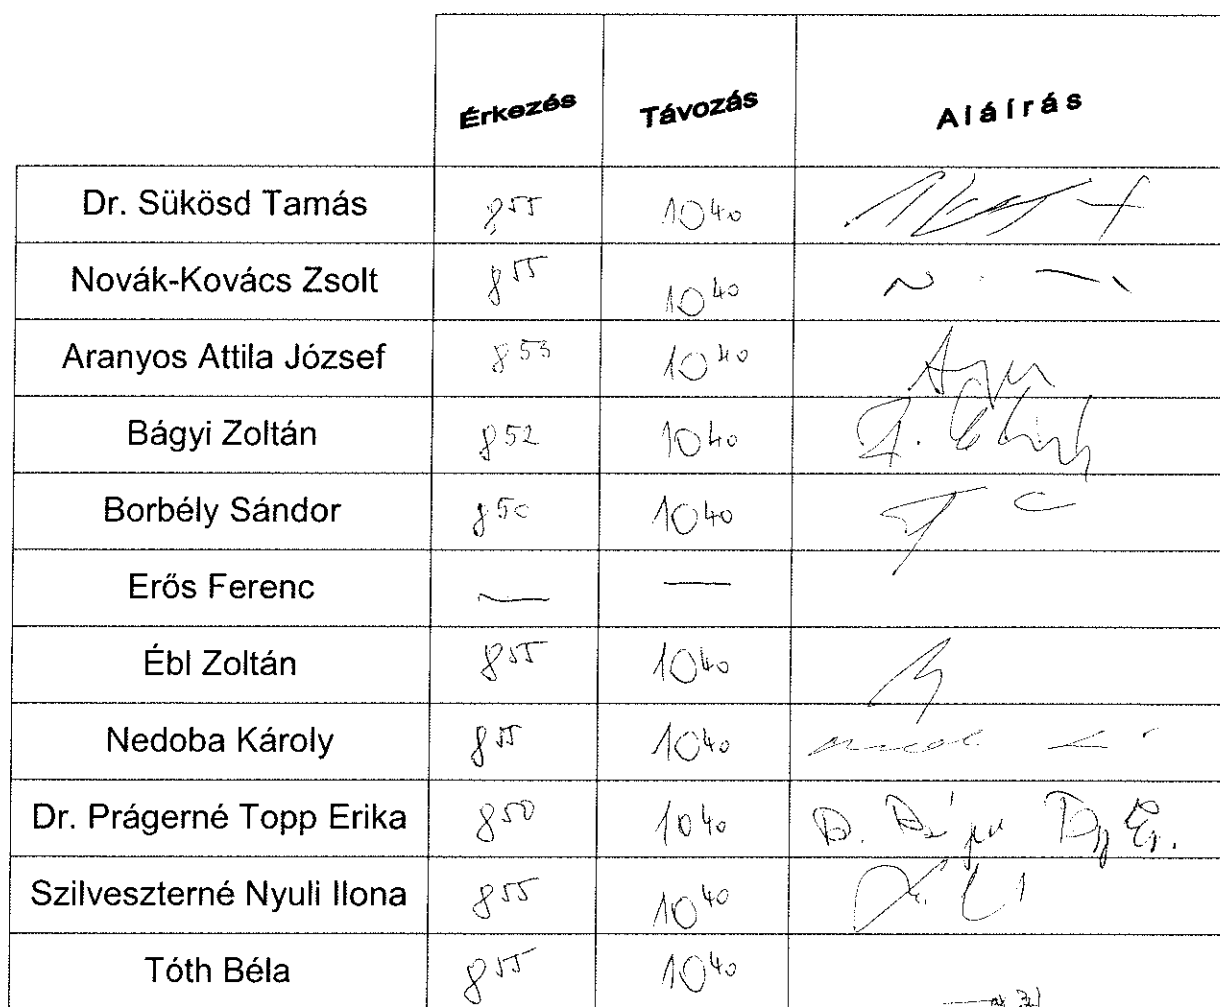 Érkezés Távozás Aláírás
Dr. Sükösd Tamás 8⁵⁵ 10⁴⁰
Novák-Kovács Zsolt 8⁵⁵ 10⁴⁰
Aranyos Attila József 8⁵³ 10⁴⁰
Bágyi Zoltán 8⁵² 10⁴⁰
Borbély Sándor 8⁵⁰ 10⁴⁰
Erős Ferenc — —
Ébl Zoltán 8⁵⁵ 10⁴⁰
Nedoba Károly 8⁵⁵ 10⁴⁰
Dr. Prágerné Topp Erika 8⁵⁰ 10⁴⁰
Szilveszterné Nyuli Ilona 8⁵⁵ 10⁴⁰
Tóth Béla 8⁵⁵ 10⁴⁰